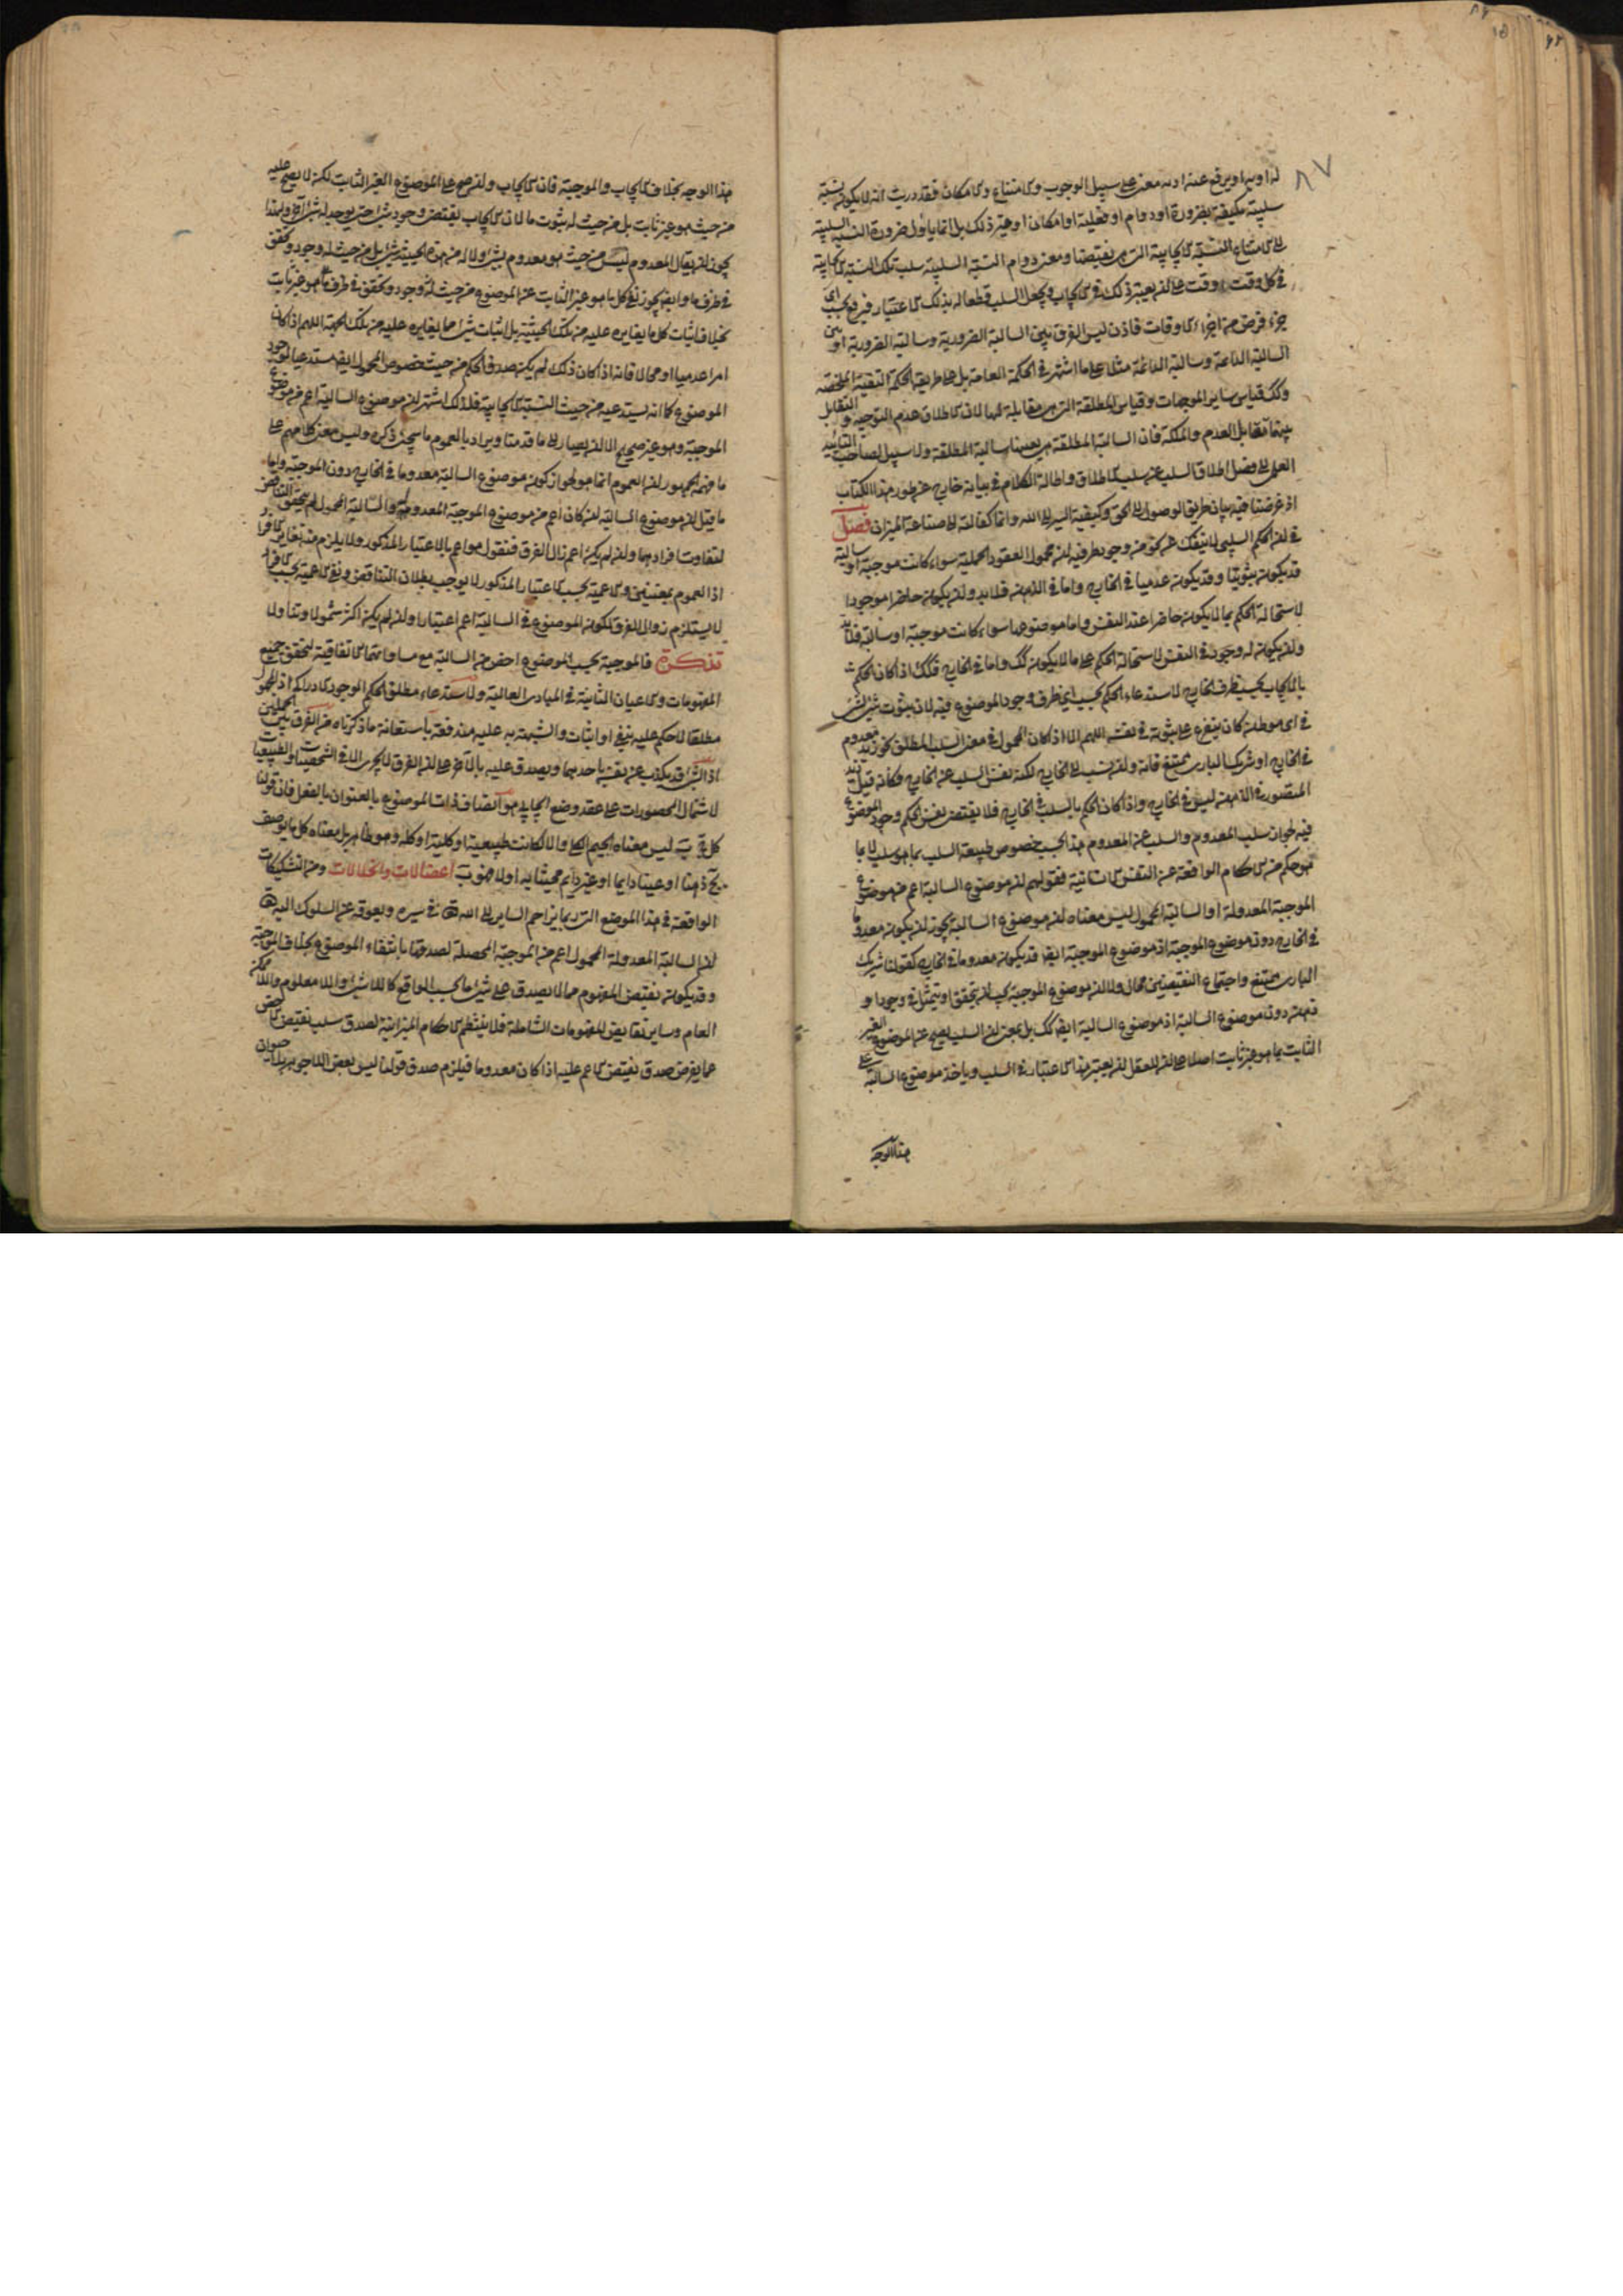 له او به او يرفع عنه او به معنى على سبيل الوجوب والامتناع والامكان فقد دريت انه لا يكون نسبة
سلبية مكيفة بضرورة او دوام او فعلية او امكان او غير ذلك بل انما ياول ضرورة النسبة السلبية
الى امتناع النسبة الايجابية التي هي نقيضها ومعنى دوام النسبة السلبية سلب تلك النسبة الايجابية
في كل وقت وقت على ان يعتبر ذلك في الايجاب ويجعل السلب قطعا له بذلك الاعتبار فيرفع بحسب اي
جزء فرض من اجزاء الاوقات فاذن ليس الفرق بين السالبة الضرورية وسالبة الضرورية او بين
السالبة الدائمة وسالبة الدائمة مثلا على ما اشتهر في الحكمة العامة بل على طريقة الحكمة النقية الملخصة
وكك قياس ساير الموجهات وقياس المطلقة التي هي مقابلة لها لان الاطلاق عدم التوجيه والتقابل
بينهما تقابل العدم والملكة فان السالبة المطلقة هي بعينها سالبة المطلقة ولا سبيل لصاحب التاييد
العلمي الى فصل اطلاق السلب عن سلب الاطلاق واطالة الكلام في بيانه خارج عن طور هذا الكتاب
اذ غرضنا فيه بيان طريق الوصول الى الحق وكيفية السير الى الله وانما كفالته الى صناعة الميزان فصل
في ان الحكم السلبي لا ينفك عن نحو من وجود طرفيه ان محمول العقود الحملية سواء كانت موجبة او سالبة
قد يكون ثبوتيا وقد يكون عدميا في الخارج واما في الذهن فلا بد وان يكون حاضرا موجودا
لاستحالة الحكم بما لا يكون حاضرا عند النفس واما موضوعها سواء كانت موجبة او سالبة فلا بد
وان يكون له وجود في النفس لاستحالة الحكم على ما لا يكون كك واما في الخارج فكك اذا كان الحكم
بالايجاب بحسب ظرف الخارج لاستدعاء الحكم بحسب اي ظرف وجود الموضوع فيه لان ثبوت شي لشي
في اي موطن كان يتفرع على ثبوته في نفسه اللهم الا اذا كان المحمول في معنى السلب المطلق نحو زيد معدوم
في الخارج او شريك الباري ممتنع فانه وان نسب الى الخارج لكنه نفس السلب عن الخارج وكانه قيل زيد
المتصور في الذهن ليس في الخارج واذا كان الحكم بالسلب في الخارج فلا يقتضي نفس الحكم وجود الموضوع
فيه لجواز سلب المعدوم والسلب عن المعدوم هذا بحسب خصوص طبيعة السلب بما هو سلب لا بما
هو حكم من الاحكام الواقعة عن النفس الانسانية فقولهم ان موضوع السالبة اعم من موضوع
الموجبة المعدولة او السالبة المحمول ليس معناه ان موضوع السالبة يجوز ان يكون معدوما
في الخارج دون موضوع الموجبة اذ موضوع الموجبة ايضا قد يكون معدوما في الخارج كقولنا شريك
الباري ممتنع واجتماع النقيضين محال ولا ان موضوع الموجبة يجب ان يتحقق او يتمثل في وجود او
ذهن دون موضوع السالبة اذ موضوع السالبة ايضا كك بل بمعنى ان السلب يصح عن الموضوع الغير
الثابت بما هو غير ثابت اصلا على ان للعقل ان يعتبر هذا الاعتبار في السلب وياخذ موضوع السالبة على
هذا الوجه
هذا الوجه بخلاف الايجاب والموجبة فان الايجاب وان صح على الموضوع الغير الثابت لكن لا يصح عليه
من حيث هو غير ثابت بل من حيث له ثبوت ما لان الايجاب يقتضي وجود شي حتى يوجد له شي اخر ولهذا
يجوز ان يقال المعدوم ليس من حيث هو معدوم بشي ولا له من هذه الحيثية شي بل من حيث له وجود وتحقق
في ظرف ما وايضا يجوز نفي كل ما هو غير الثابت عن الموضوع من حيث له وجود وتحقق في ظرف ما هو غير ثابت
بخلاف اثبات كل ما يغايره عليه من تلك الحيثية بل اثبات شي مما يغايره عليه من تلك الجهة اللهم اذا كان
امرا عدميا او محالا فانه اذا كان ذلك لم يكن صدق الحكم من حيث خصوص المحمول ايضا مستدعيا لوجود
الموضوع كما انه يستدعيه من حيث النسبة الايجابية فلذلك اشتهر ان موضوع السالبة اعم من موضوع
الموجبة وهو غير صحيح الا ان يصار الى ما قدمنا ويراد بالعموم ما سيجئ ذكره وليس معنى كلامهم على
ما فهمه الجمهور ان العموم انما هو لجواز كون موضوع السالبة معدوما في الخارج دون الموجبة واما
ما قيل ان موضوع السالبة ان كان اعم من موضوع الموجبة المعدولة والسالبة المحمول لم يتحقق التناقض
لتفاوت افرادهما وان لم يكن اعم زال الفرق فنقول هو اعم بالاعتبار المذكور ولا يلزم منه تغاير في الافراد
اذ العموم بمعنيين والاعمية بحسب الاعتبار المذكور لا يوجب بطلان التناقض ونفي الاعمية بحسب الافراد
لا يستلزم زوال الفرق لكون الموضوع في السالبة اعم اعتبارا وان لم يكن اكثر شمولا وتناولا
تذكرة فالموجبة بحسب الموضوع اخص من السالبة مع مساواتهما الاتفاقية لتحقق جميع
المفهومات والاعيان الثابتة في المبادي العالية ولاستدعاء مطلق الحكم الوجود الادراكي اذ المجهول
مطلقا لا حكم عليه بنفي او اثبات والشبهة به عليه مندفعة باستعانة ما ذكرناه من الفرق بين الحملين
اذ الشي قد يكذب عن نفسه باحدهما ويصدق عليه بالاخر على ان الفرق لا يجري الا في الشخصيات والطبيعيات
لاشتمال المحصورات على عقد وضع ايجابي هو اتصاف ذات الموضوع بالعنوان بالفعل فان قولنا
كل ج ب ليس معناه الجيم الكلي والا لكانت طبيعية او كلية او كله وهو ظاهر بل معناه كل ما يوصف
بج ذهنا او عينا دايما او غير دايم محيثا به او لا فهو ب اعضالات وانحلالات ومن التشكيكات
الواقعة في هذا الموضع التي ربما يزاحم السالك الى الله تعالى في سيره ويعوقه عن السلوك اليه تعالى
ان السالبة المعدولة المحمول اعم من الموجبة المحصلة لصدقها بانتفاء الموضوع بخلاف الموجبة
وقد يكون نقيض المفهوم مما لا يصدق على شي ما بحسب الواقع كاللاشي واللامعلوم واللاممكن
العام وساير نقايض المفهومات الشاملة فلا ينتظم الاحكام الميزانية لصدق سلب نقيض الاخص
عما يفرض صدق نقيض الاعم عليه اذا كان معدوما فيلزم صدق قولنا ليس بعض اللاجوهر بلا حيوان